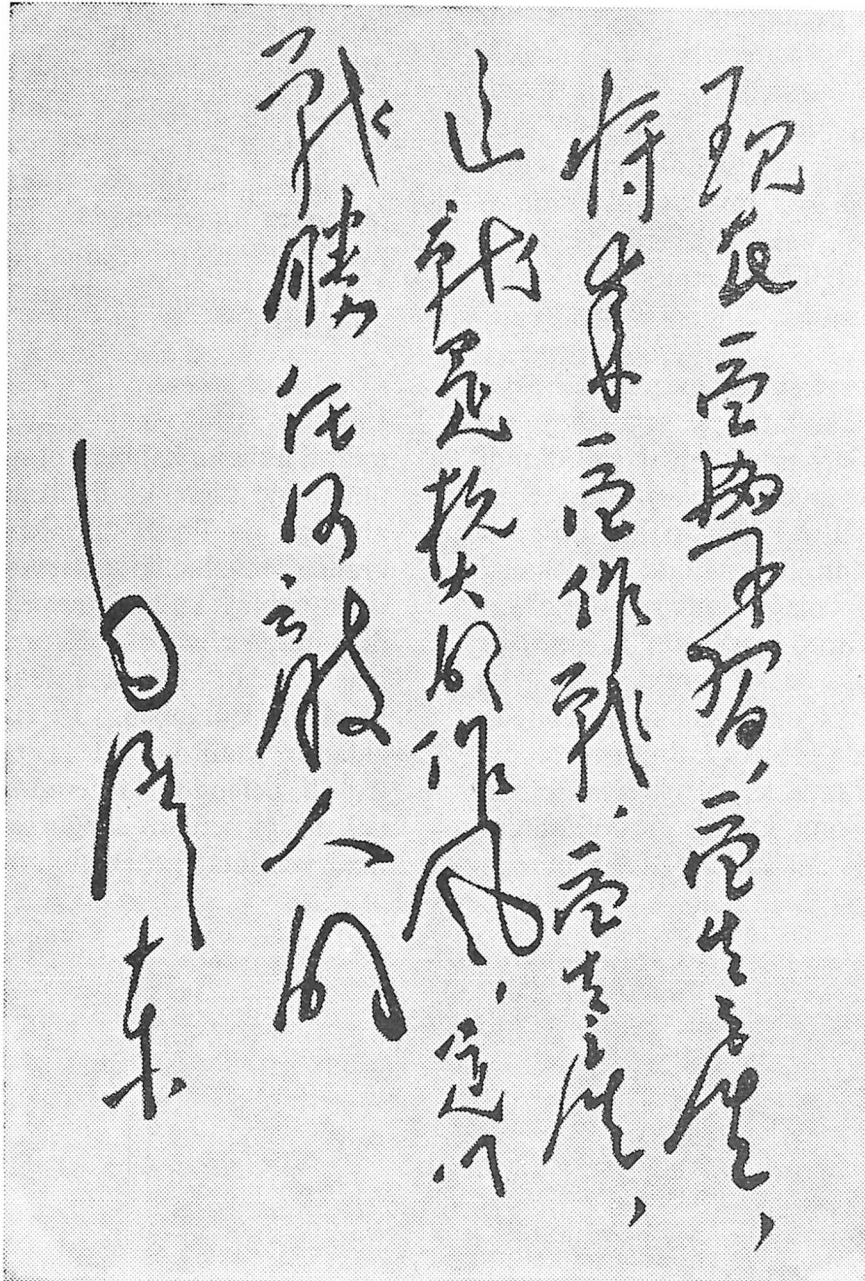 現在一面學習、一面生產，
將來一面作戰、一面生產，
這就是抗大的作風，足以
戰勝任何敵人的
毛澤東